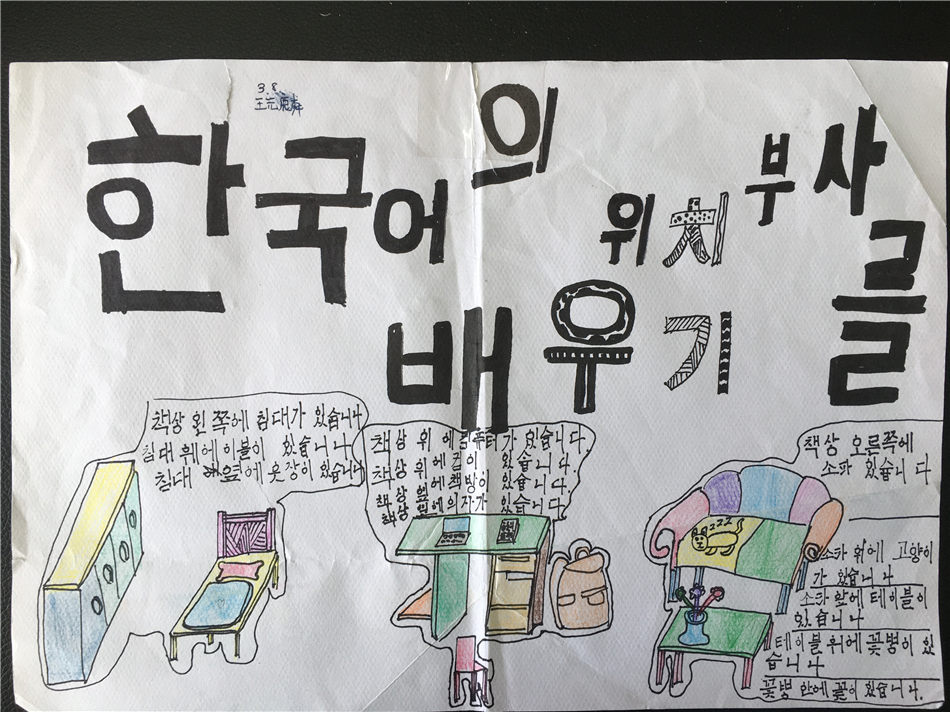 3.8
한국어의
위치 부사를
배우기
책상 왼쪽에 침대가 있습니다
침대 위에 이불이 있습니다
침대 옆에 옷장이 있습니다
책상 위에 컴퓨터가 있습니다.
책상 위에 컵이 있습니다.
책상 옆에 책방이 있습니다.
책상 앞에 의자가 있습니다
책상 오른쪽에
소파 있습니다
소파 위에 고양이
가 있습니다
소파 앞에 테이블이
있습니다
테이블 위에 꽃병이 있
습니다
꽃병 안에 꽃이 있습니다.
zzz